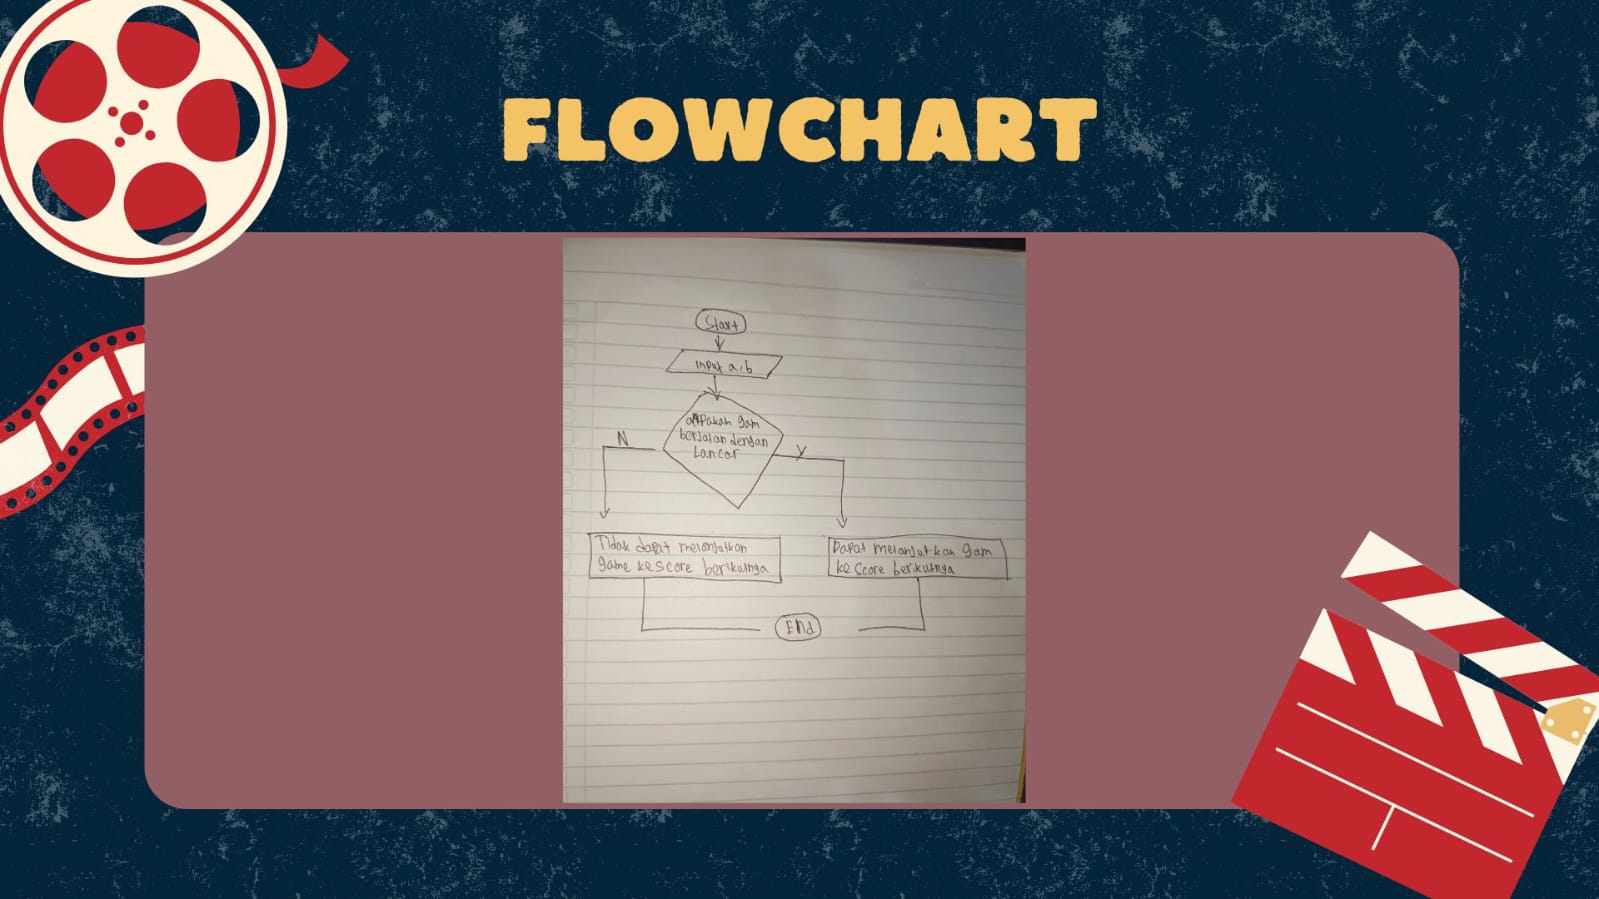 FLOWCHART
Start
input a,b
apakah gam
berjalan dengan
Lancar
N
Y
Tidak dapat melanjutkan
game ke score berikutnya
Dapat melanjutkan gam
ke Score berikutnya
End